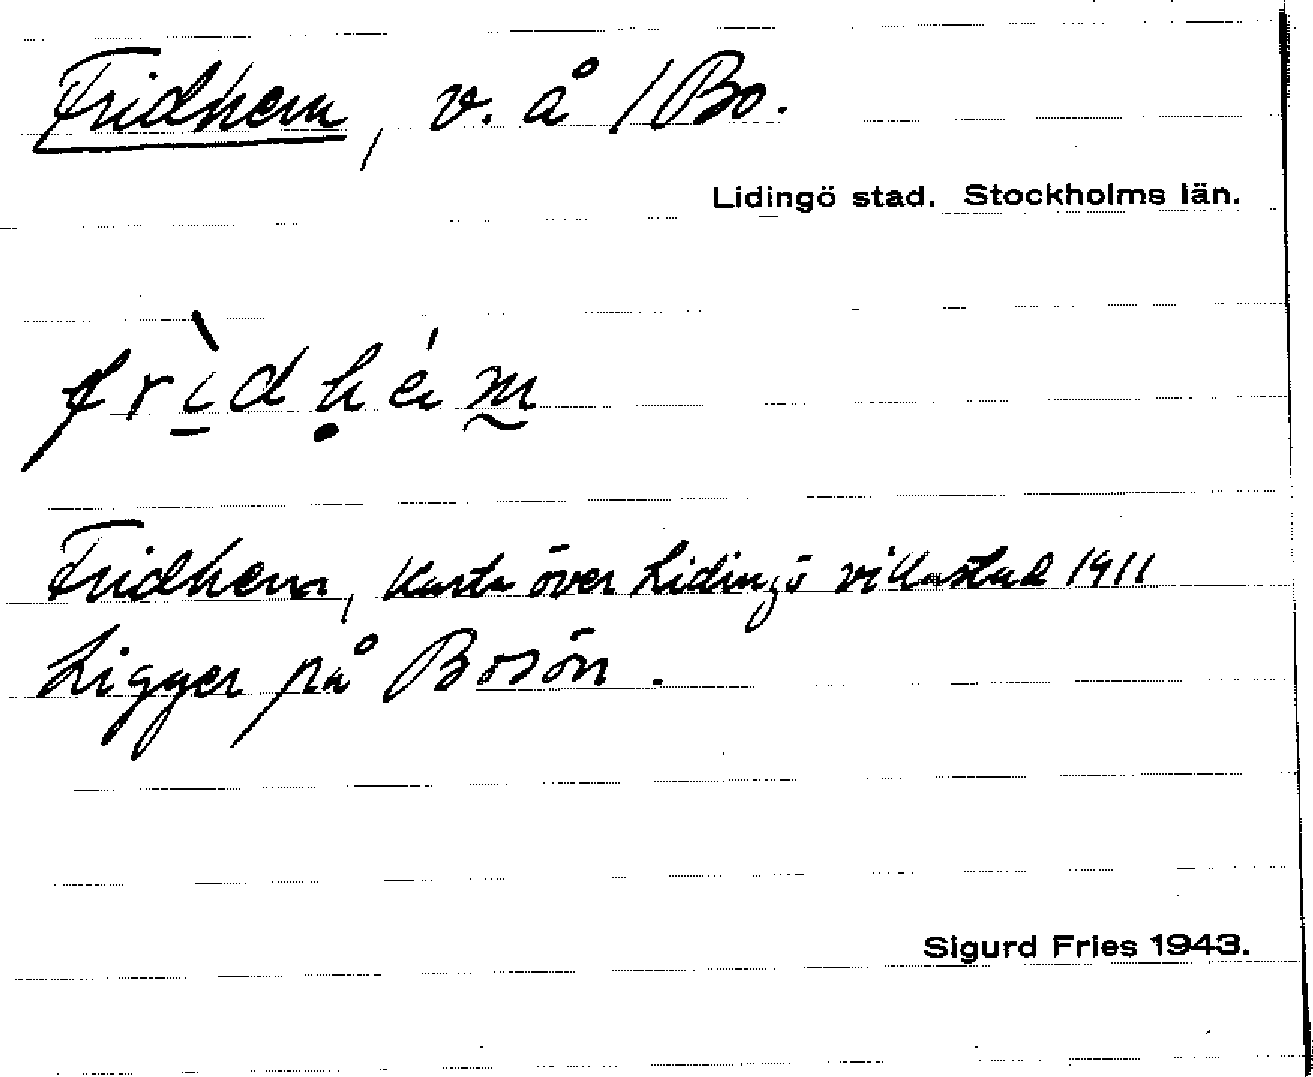 Fridhem, v. å /Bo.
Lidingö stad. Stockholms län.
frì̱dḥém̰
Fridhem, Karta över Lidingö villastad 1911
Ligger på Bosön.
Sigurd Fries 1943.